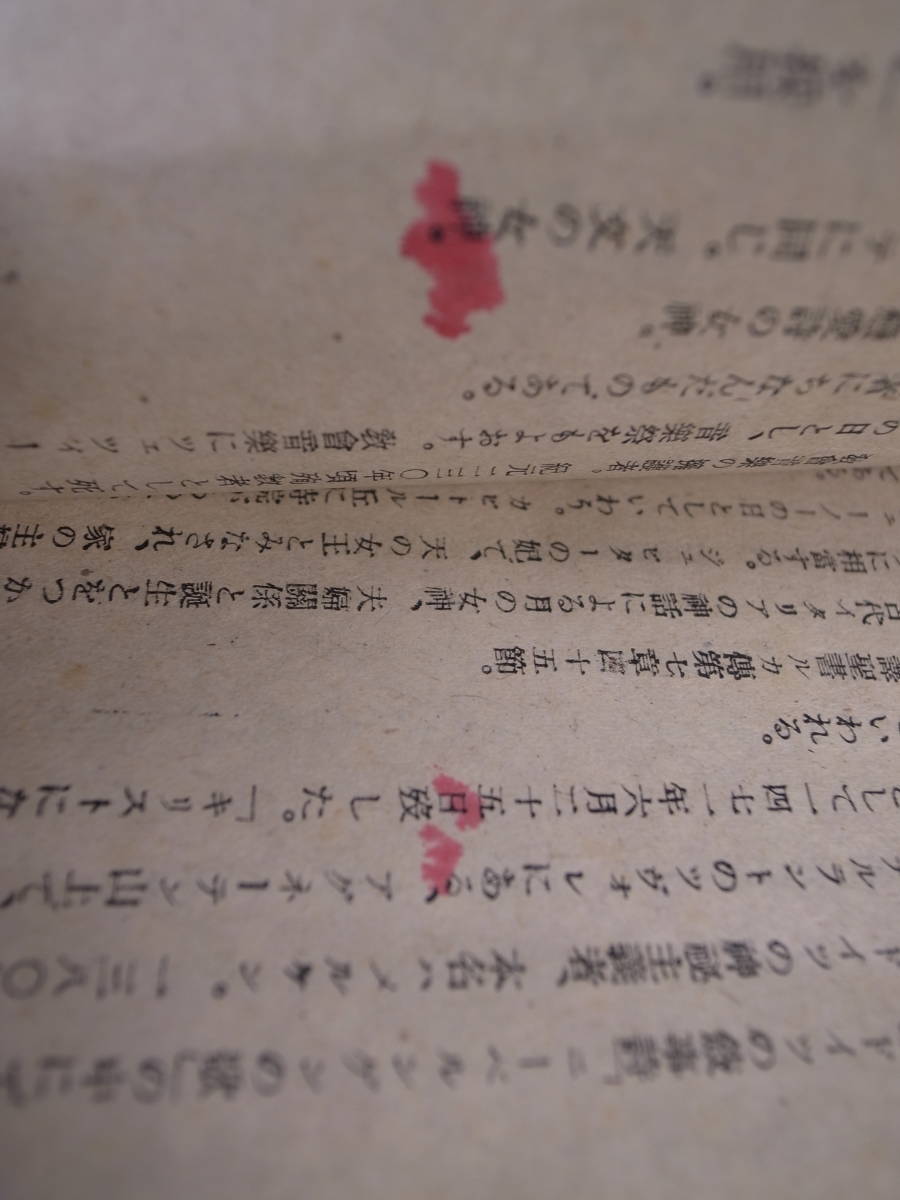 ドイツの敍事詩「ニーベルンゲンの歌」の中に
ドイツの神祕主義者、本名ハメルケン。一三八〇
ルラントのツヴォレにある、アグネーテン山上で、
として一四七一年六月二十五日歿した。「キリストにな
いわれる。
譯聖書ルカ傳第七章四十五節。
古代イタリアの神話による月の女神、夫婦關係と誕生とをつか
に相當する。ジュピターの妃で、天の女王とみなされ、家の主
ューノーの日としていわう。カピトール丘に寺院
である。
敎會音樂の守護者。紀元二三〇年頃殉敎者として死す。
の日とし、音樂祭をもよおす。敎會音樂にツェツィー
にちなんだものである。
戀愛詩の女神。
アに同じ。天文の女神。